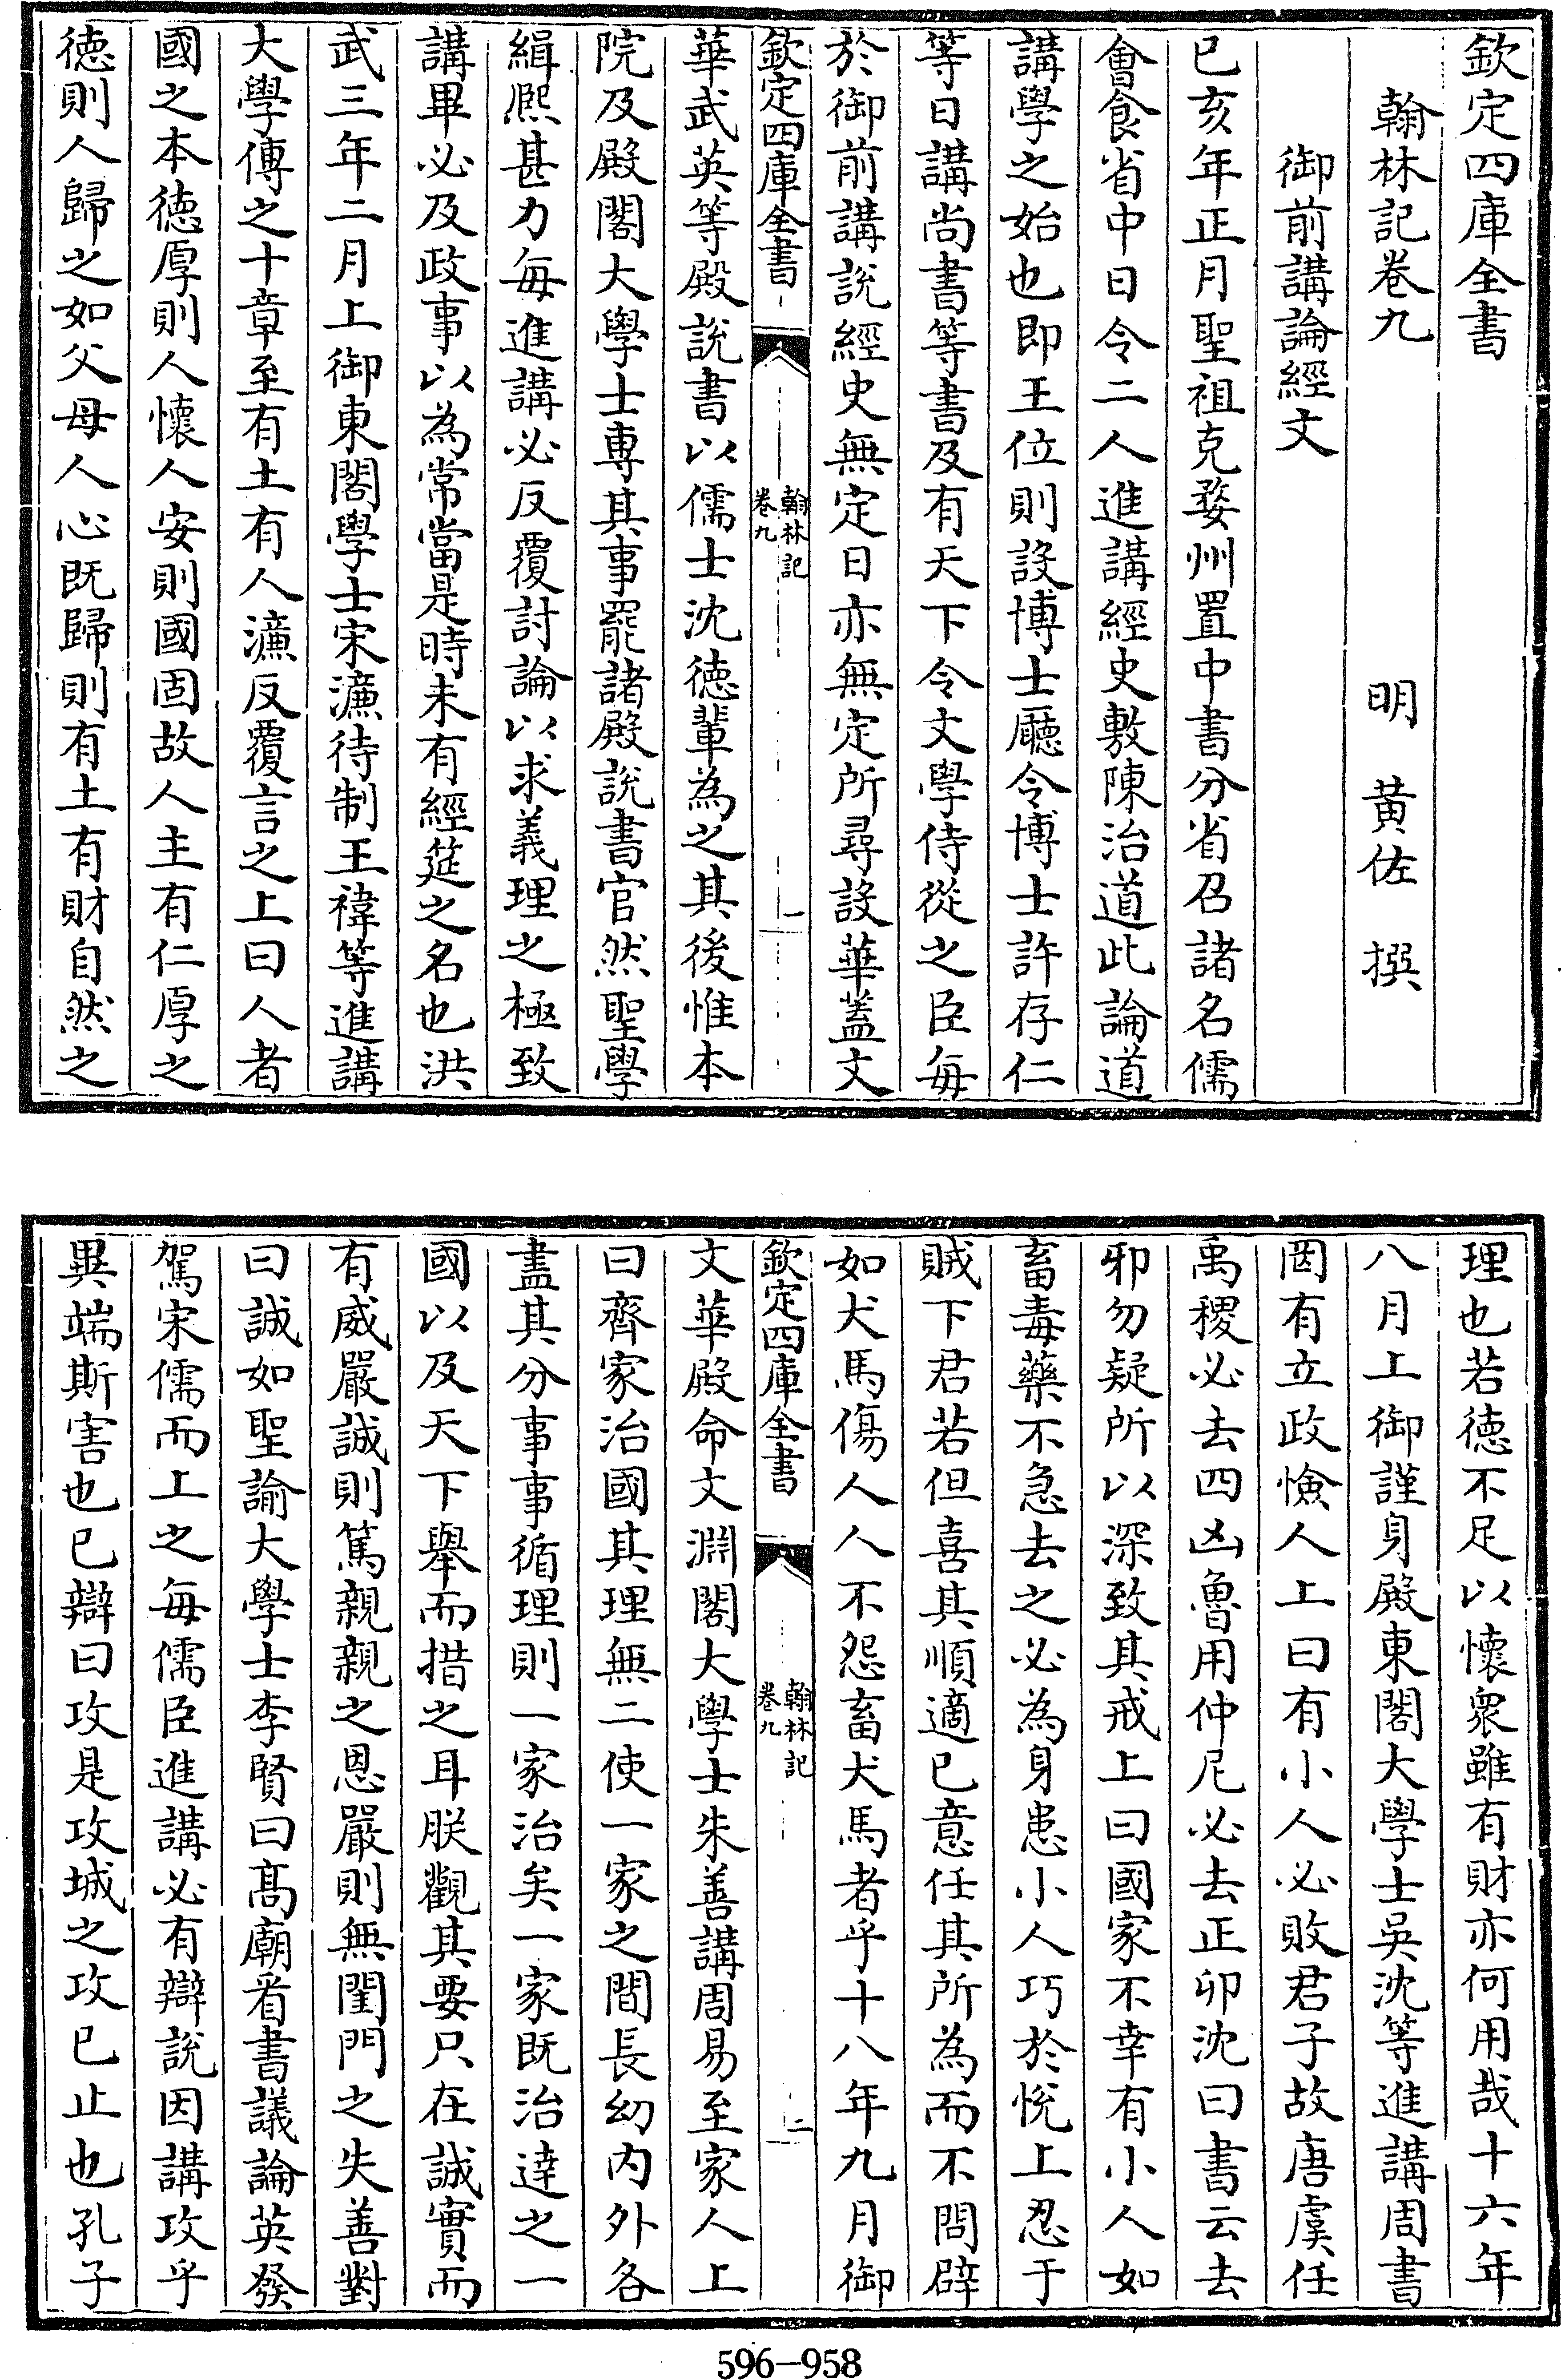 欽定四庫全書
翰林記卷九
明 黄佐 撰
御前講論經文
已亥年正月聖祖克婺州置中書分省召諸名儒
會食省中日令二人進講經史敷陳治道此論道
講學之始也即王位則設博士廳令博士許存仁
等日講尚書等書及有天下令文學侍從之臣毎
於御前講説經史無定日亦無定所尋設華蓋文
欽定四庫全書
翰林記
卷九
一
華武英等殿説書以儒士沈徳輩為之其後惟本
院及殿閣大學士專其事罷諸殿説書官然聖學
緝熈甚力毎進講必反覆討論以求義理之極致
講畢必及政事以為常當是時未有經筵之名也洪
武三年二月上御東閣學士宋濂待制王禕等進講
大學傳之十章至有土有人濂反覆言之上曰人者
國之本徳厚則人懷人安則國固故人主有仁厚之
徳則人歸之如父母人心既歸則有土有財自然之
理也若徳不足以懷衆雖有財亦何用哉十六年
八月上御謹身殿東閣大學士吳沈等進講周書
罔有立政憸人上曰有小人必敗君子故唐虞任
禹稷必去四凶魯用仲尼必去正卯沈曰書云去
邪勿疑所以深致其戒上曰國家不幸有小人如
畜毒藥不急去之必為身患小人巧於悅上忍于
賊下君若但喜其順適已意任其所為而不問辟
如犬馬傷人人不怨畜犬馬者乎十八年九月御
欽定四庫全書
翰林記
卷九
二
文華殿命文淵閣大學士朱善講周易至家人上
曰齊家治國其理無二使一家之間長幼内外各
盡其分事事循理則一家治矣一家既治達之一
國以及天下舉而措之耳朕觀其要只在誠實而
有威嚴誠則篤親親之恩嚴則無閨門之失善對
曰誠如聖諭大學士李賢曰髙廟㸔書議論英發
駕宋儒而上之毎儒臣進講必有辯説因講攻乎
異端斯害也已辯曰攻是攻城之攻已止也孔子
596-958